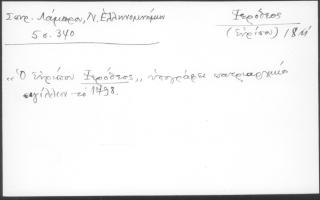 Σπυρ. Λάμπρου, Ν. Ἑλληνομνήμων
5 σ. 340
Ἱερόθεος
(Εὐρίπου) 18
"Ὁ Εὐρίπου Ἱερόθεος,, ὑπογράφει πατριαρχικόν
σιγίλλιον τὸ 1798.